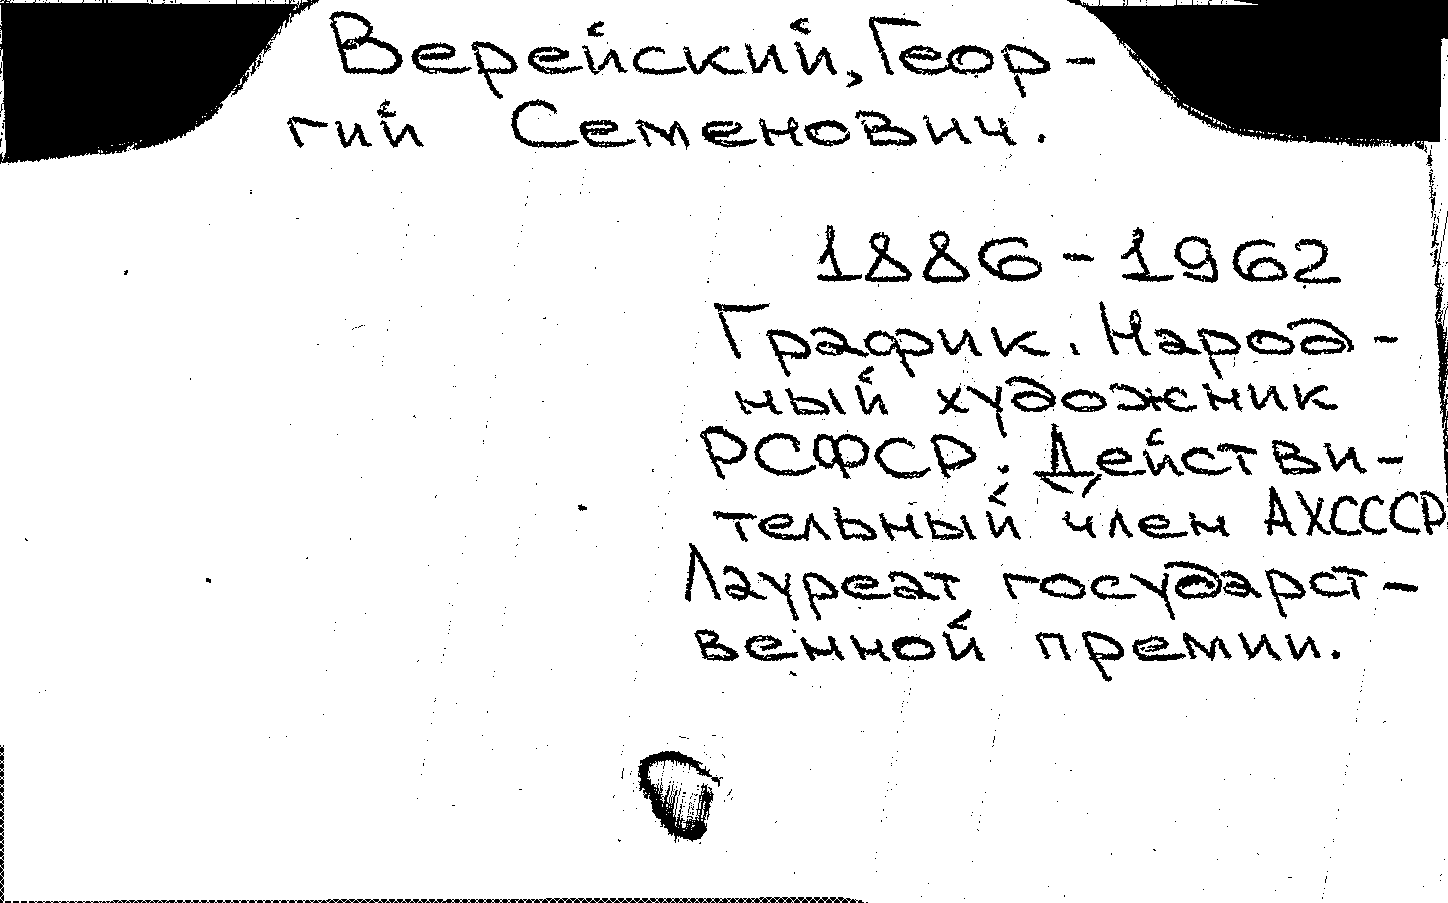 Верейский, Геор-
гий Семенович.
1886-1962
График. Народ-
ный художник
РСФСР. Действи-
тельный член АХСССР
Лауреат государст-
венной премии.